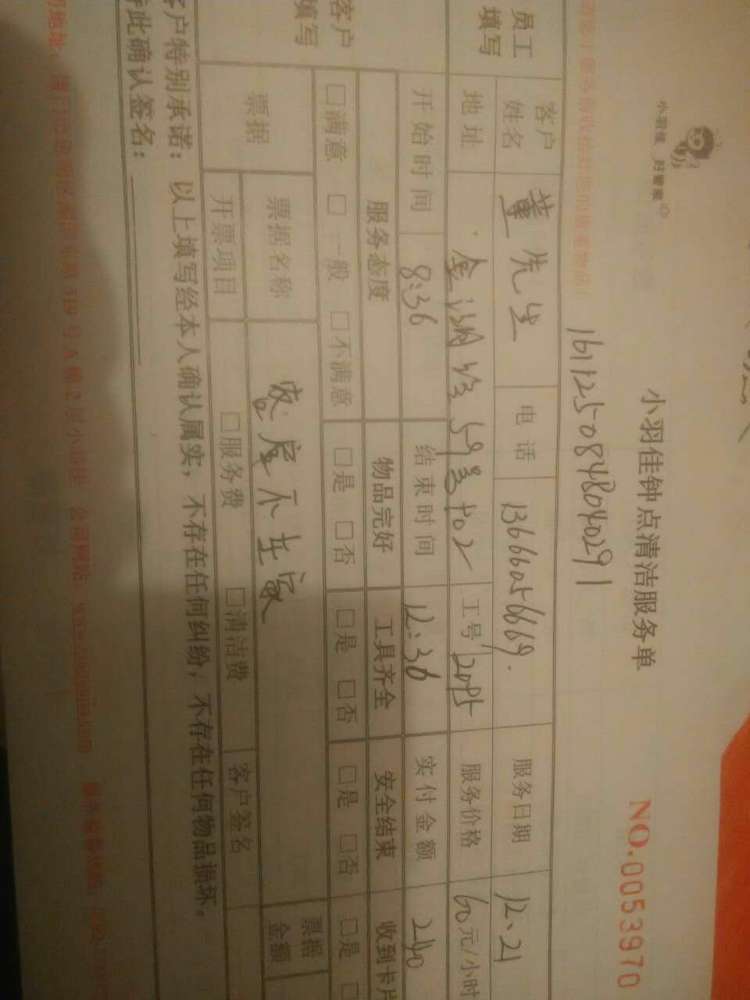 小羽佳 好管家
小羽佳钟点清洁服务单
NO.0053970
161125084804029 1
员工填写
客户姓名 董先生 电话 13666056669. 服务日期 12.21
地址 金湖路59号402 工号 2095 服务价格 60元/小时
开始时间 8:36 结束时间 12:36 实付金额 240
客户填写
服务态度 物品完好 工具齐全 安全结束 收到卡片
□满意 □一般 □不满意 □是 □否 □是 □否 □是 □否 □是
票据 票据名称 客户不在家 票据金额
开票项目 □服务费 □清洁费 客户签名
客户特别承诺：以上填写经本人确认属实，不存在任何纠纷，不存在任何物品损坏。
此确认签名：